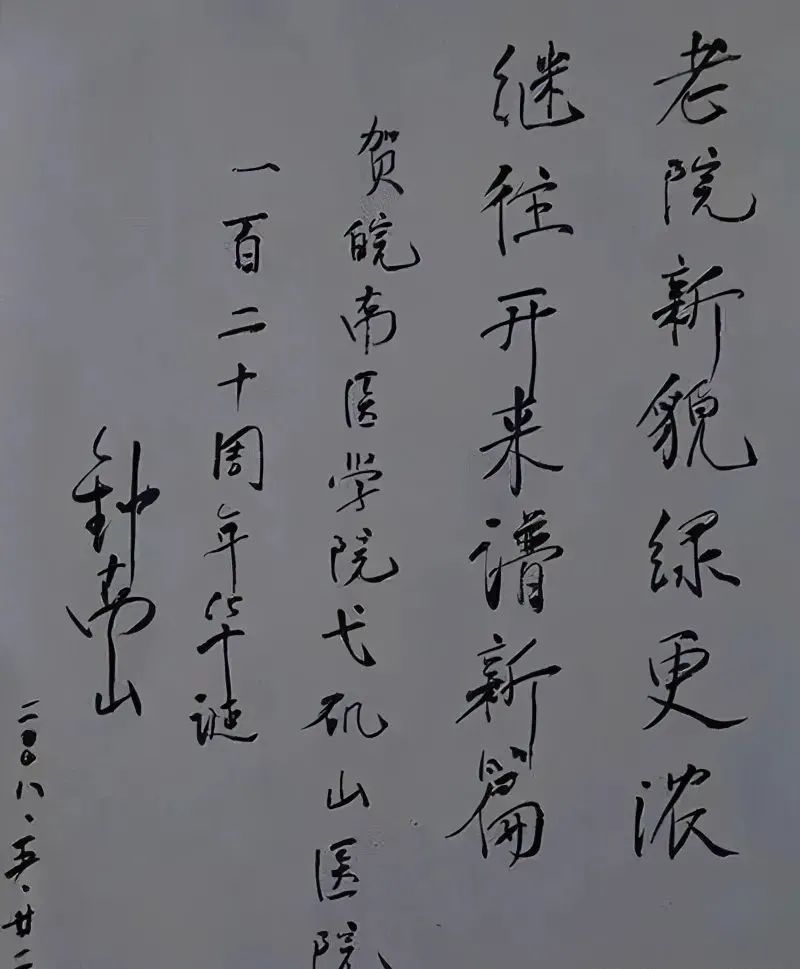 老院新貌绿更浓
继往开来谱新篇
贺皖南医学院弋矶山医院
一百二十周年华诞
钟南山
二〇〇八、五、廿二